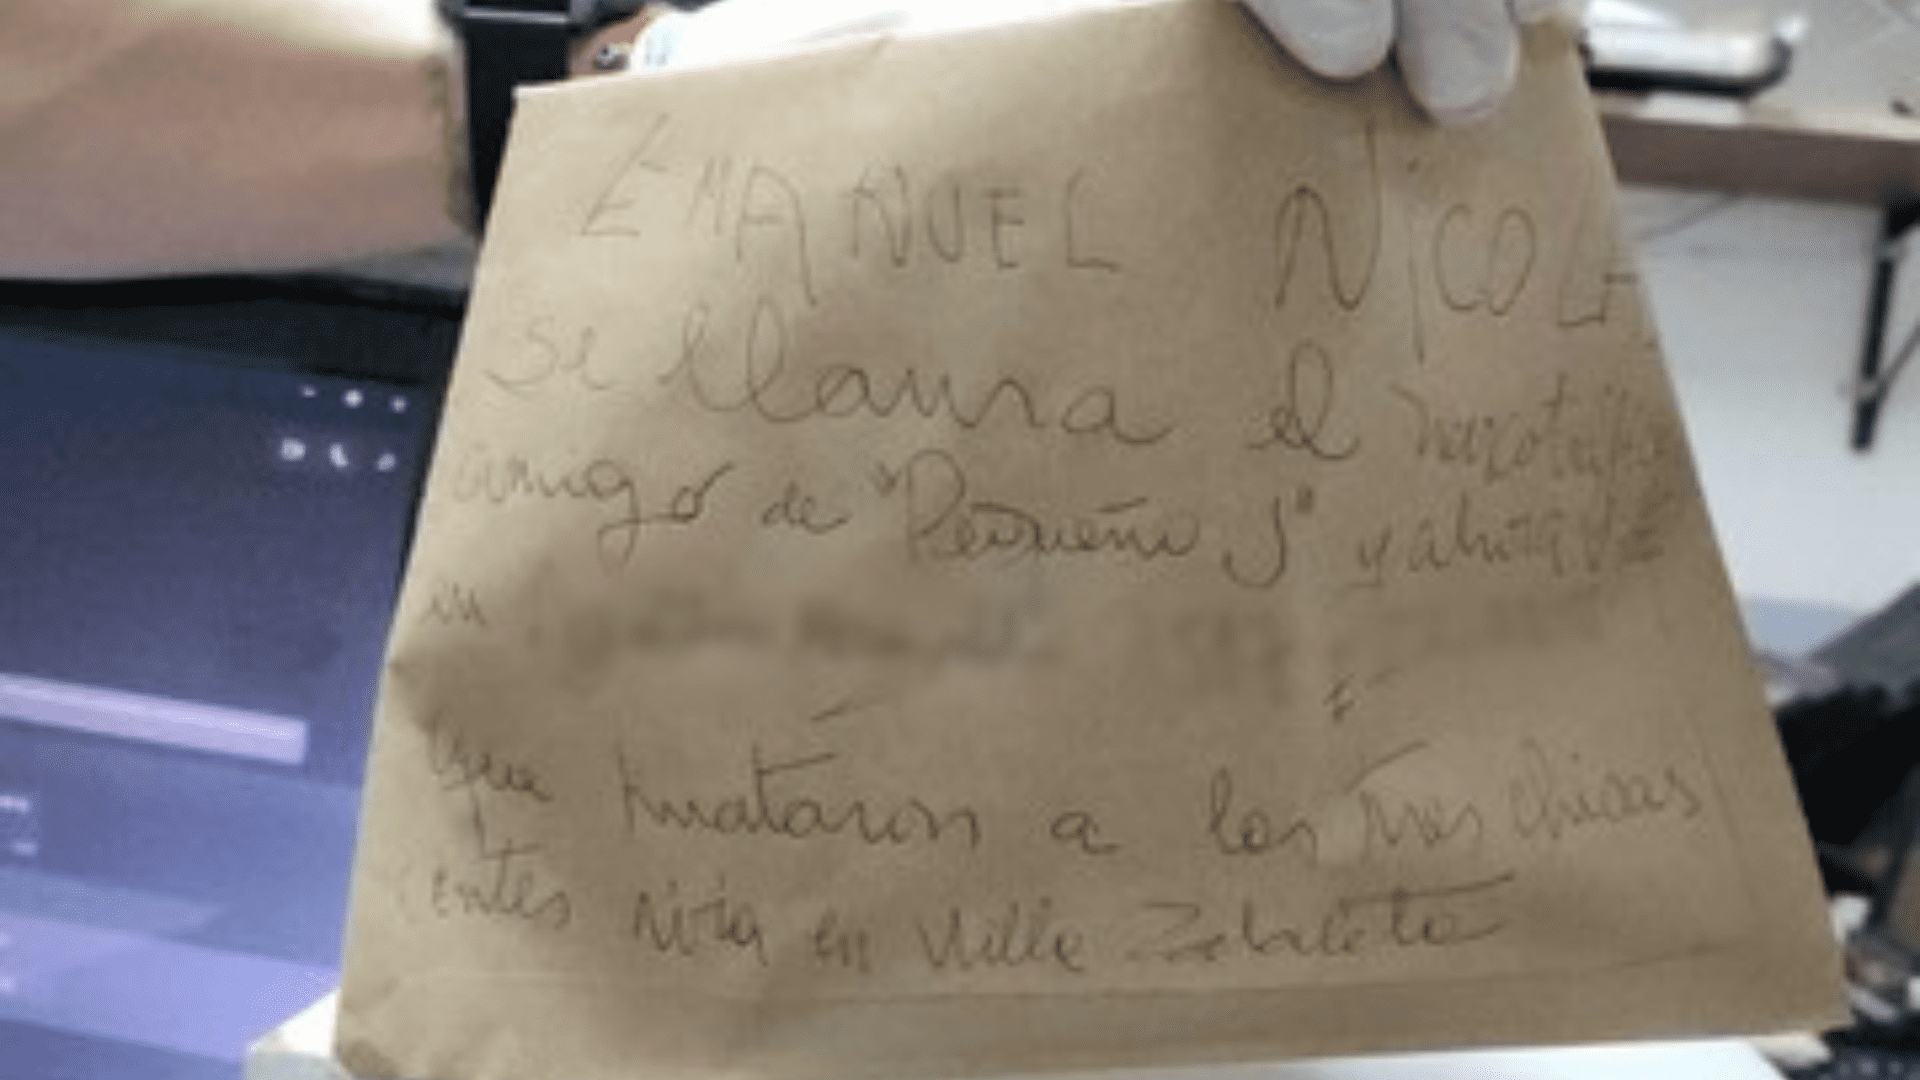 EMANUEL NICOLE
se llama el
amigo de "Pequeño J" y ahora vive
en
que mataron a las tres chicas
antes vivia en Villa Zabaleta